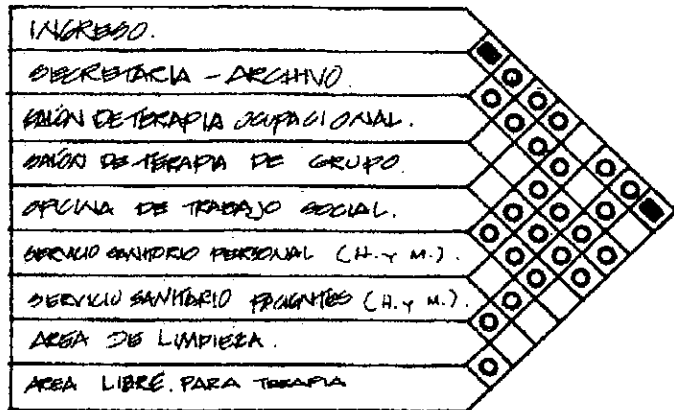 INGRESO.
SECRETARIA - ARCHIVO.
SALÓN DE TERAPIA OCUPACIONAL.
SALÓN DE TERAPIA DE GRUPO.
OFICINA DE TRABAJO SOCIAL.
SERVICIO SANITARIO PERSONAL (H. Y M.).
SERVICIO SANITARIO PACIENTES (H. Y M.).
AREA DE LIMPIEZA.
AREA LIBRE. PARA TERAPIA